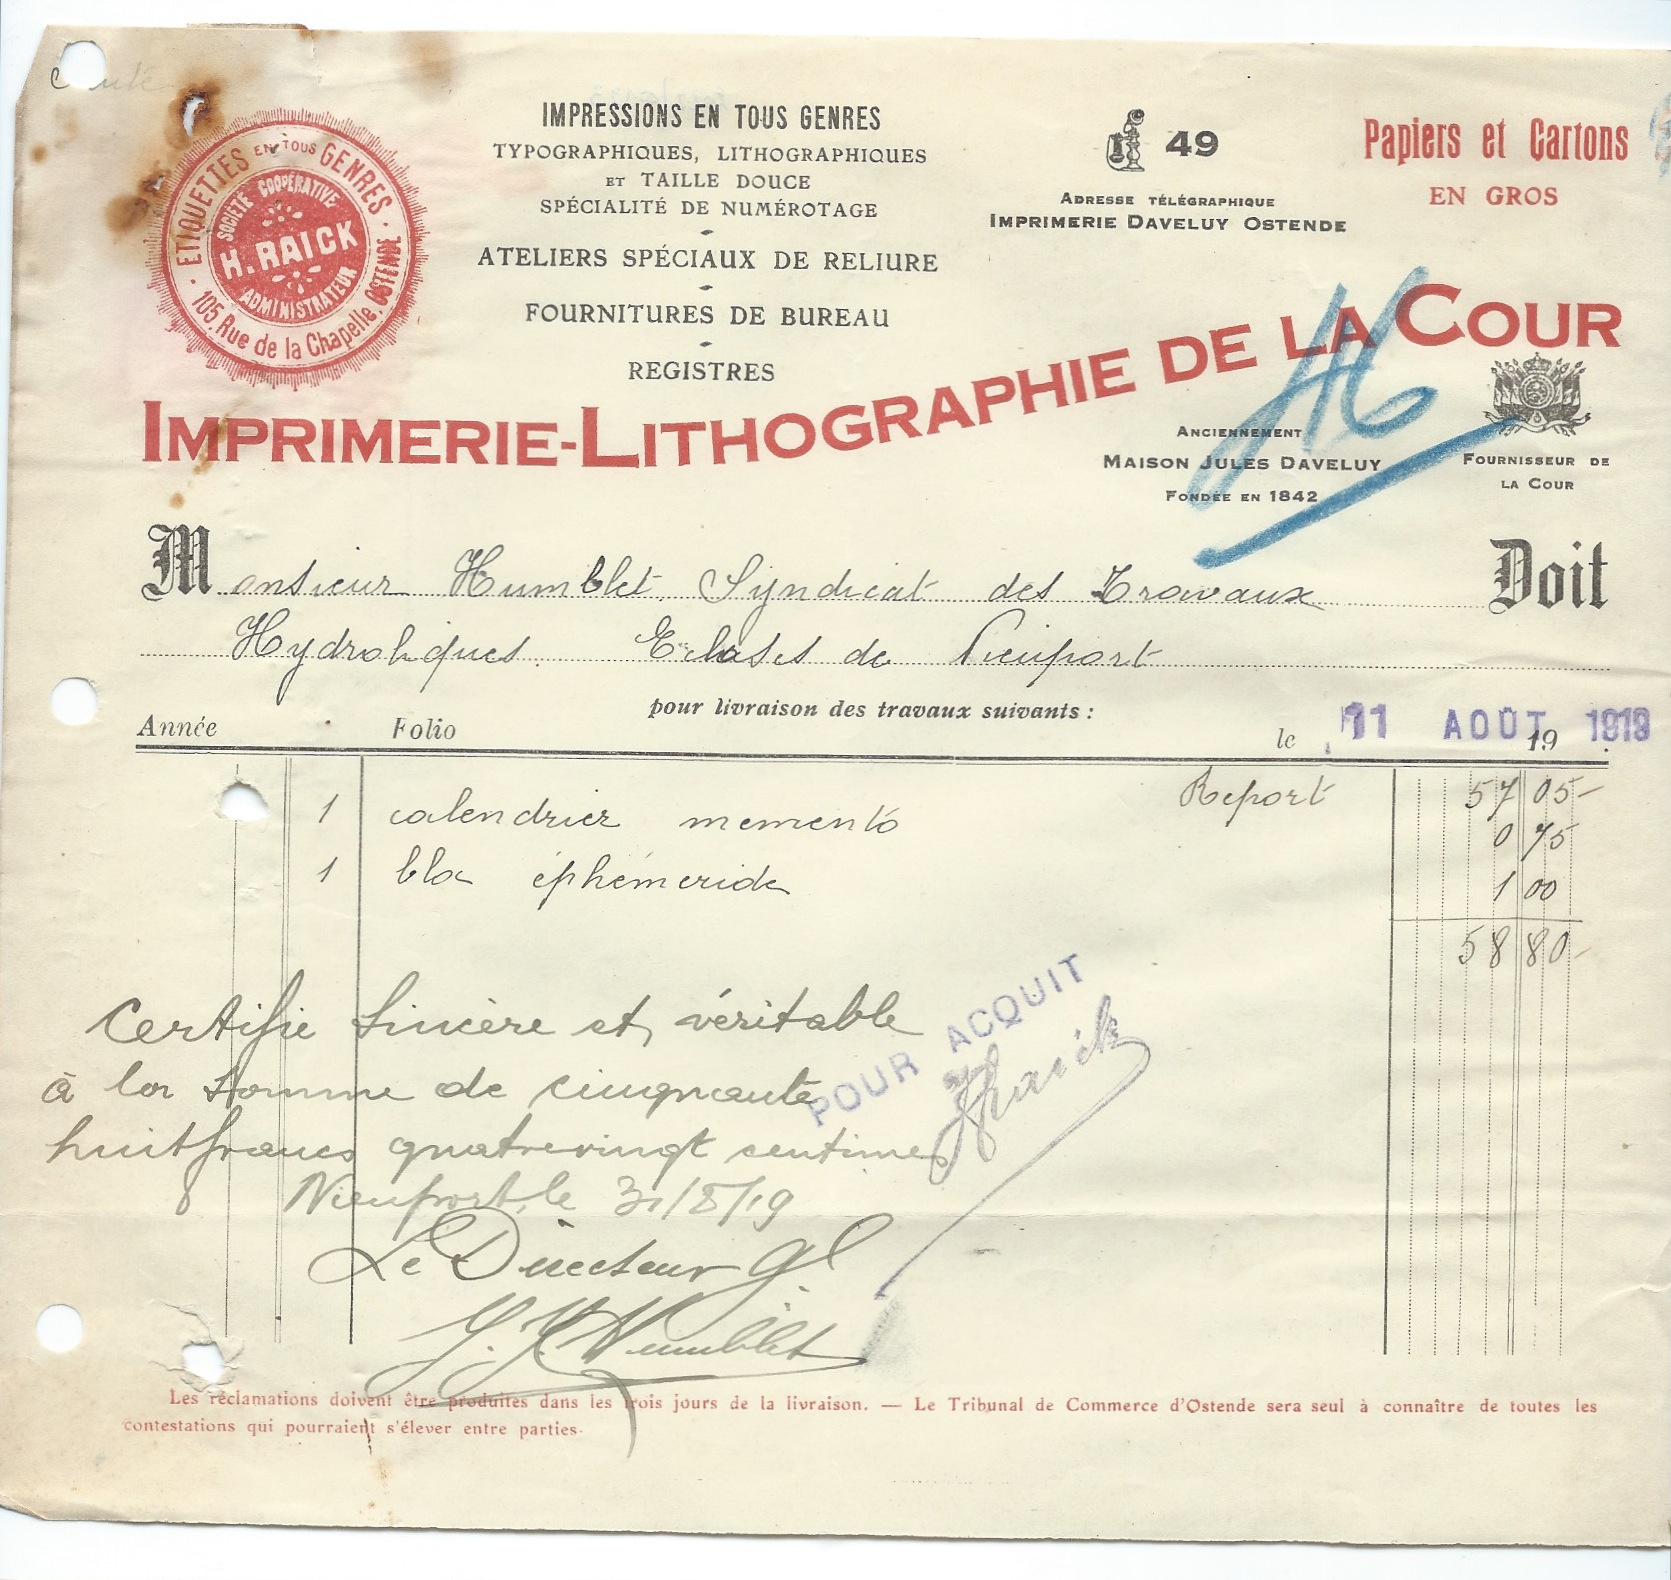 ETIQUETTES EN TOUS GENRES
SOCIÉTÉ COOPÉRATIVE
H. RAICK
ADMINISTRATEUR
105, Rue de la Chapelle, OSTENDE
IMPRESSIONS EN TOUS GENRES
TYPOGRAPHIQUES, LITHOGRAPHIQUES
ET TAILLE DOUCE
SPÉCIALITÉ DE NUMÉROTAGE
ATELIERS SPÉCIAUX DE RELIURE
FOURNITURES DE BUREAU
REGISTRES
49
ADRESSE TÉLÉGRAPHIQUE
IMPRIMERIE DAVELUY OSTENDE
Papiers et Cartons
EN GROS
IMPRIMERIE-LITHOGRAPHIE DE LA COUR
ANCIENNEMENT
MAISON JULES DAVELUY
FONDÉE EN 1842
FOURNISSEUR DE
LA COUR
Monsieur Humblet Syndicat des Travaux Doit
Hydroliques. Ecluses de Nieuport
pour livraison des travaux suivants :
Année Folio le 11 AOÛT 19 1919
Report 57 05
1 calendrier memento 0 75
1 bloc éphéméride 1 00
58 80
Certifie Sincère et véritable
à la somme de cinquante
huit francs quatrevingt centimes
Nieuport, le 31/8/19
Le Directeur Gl.
Humblet
POUR ACQUIT
HRaick
Les réclamations doivent être produites dans les trois jours de la livraison. — Le Tribunal de Commerce d'Ostende sera seul à connaître de toutes les
contestations qui pourraient s'élever entre parties.